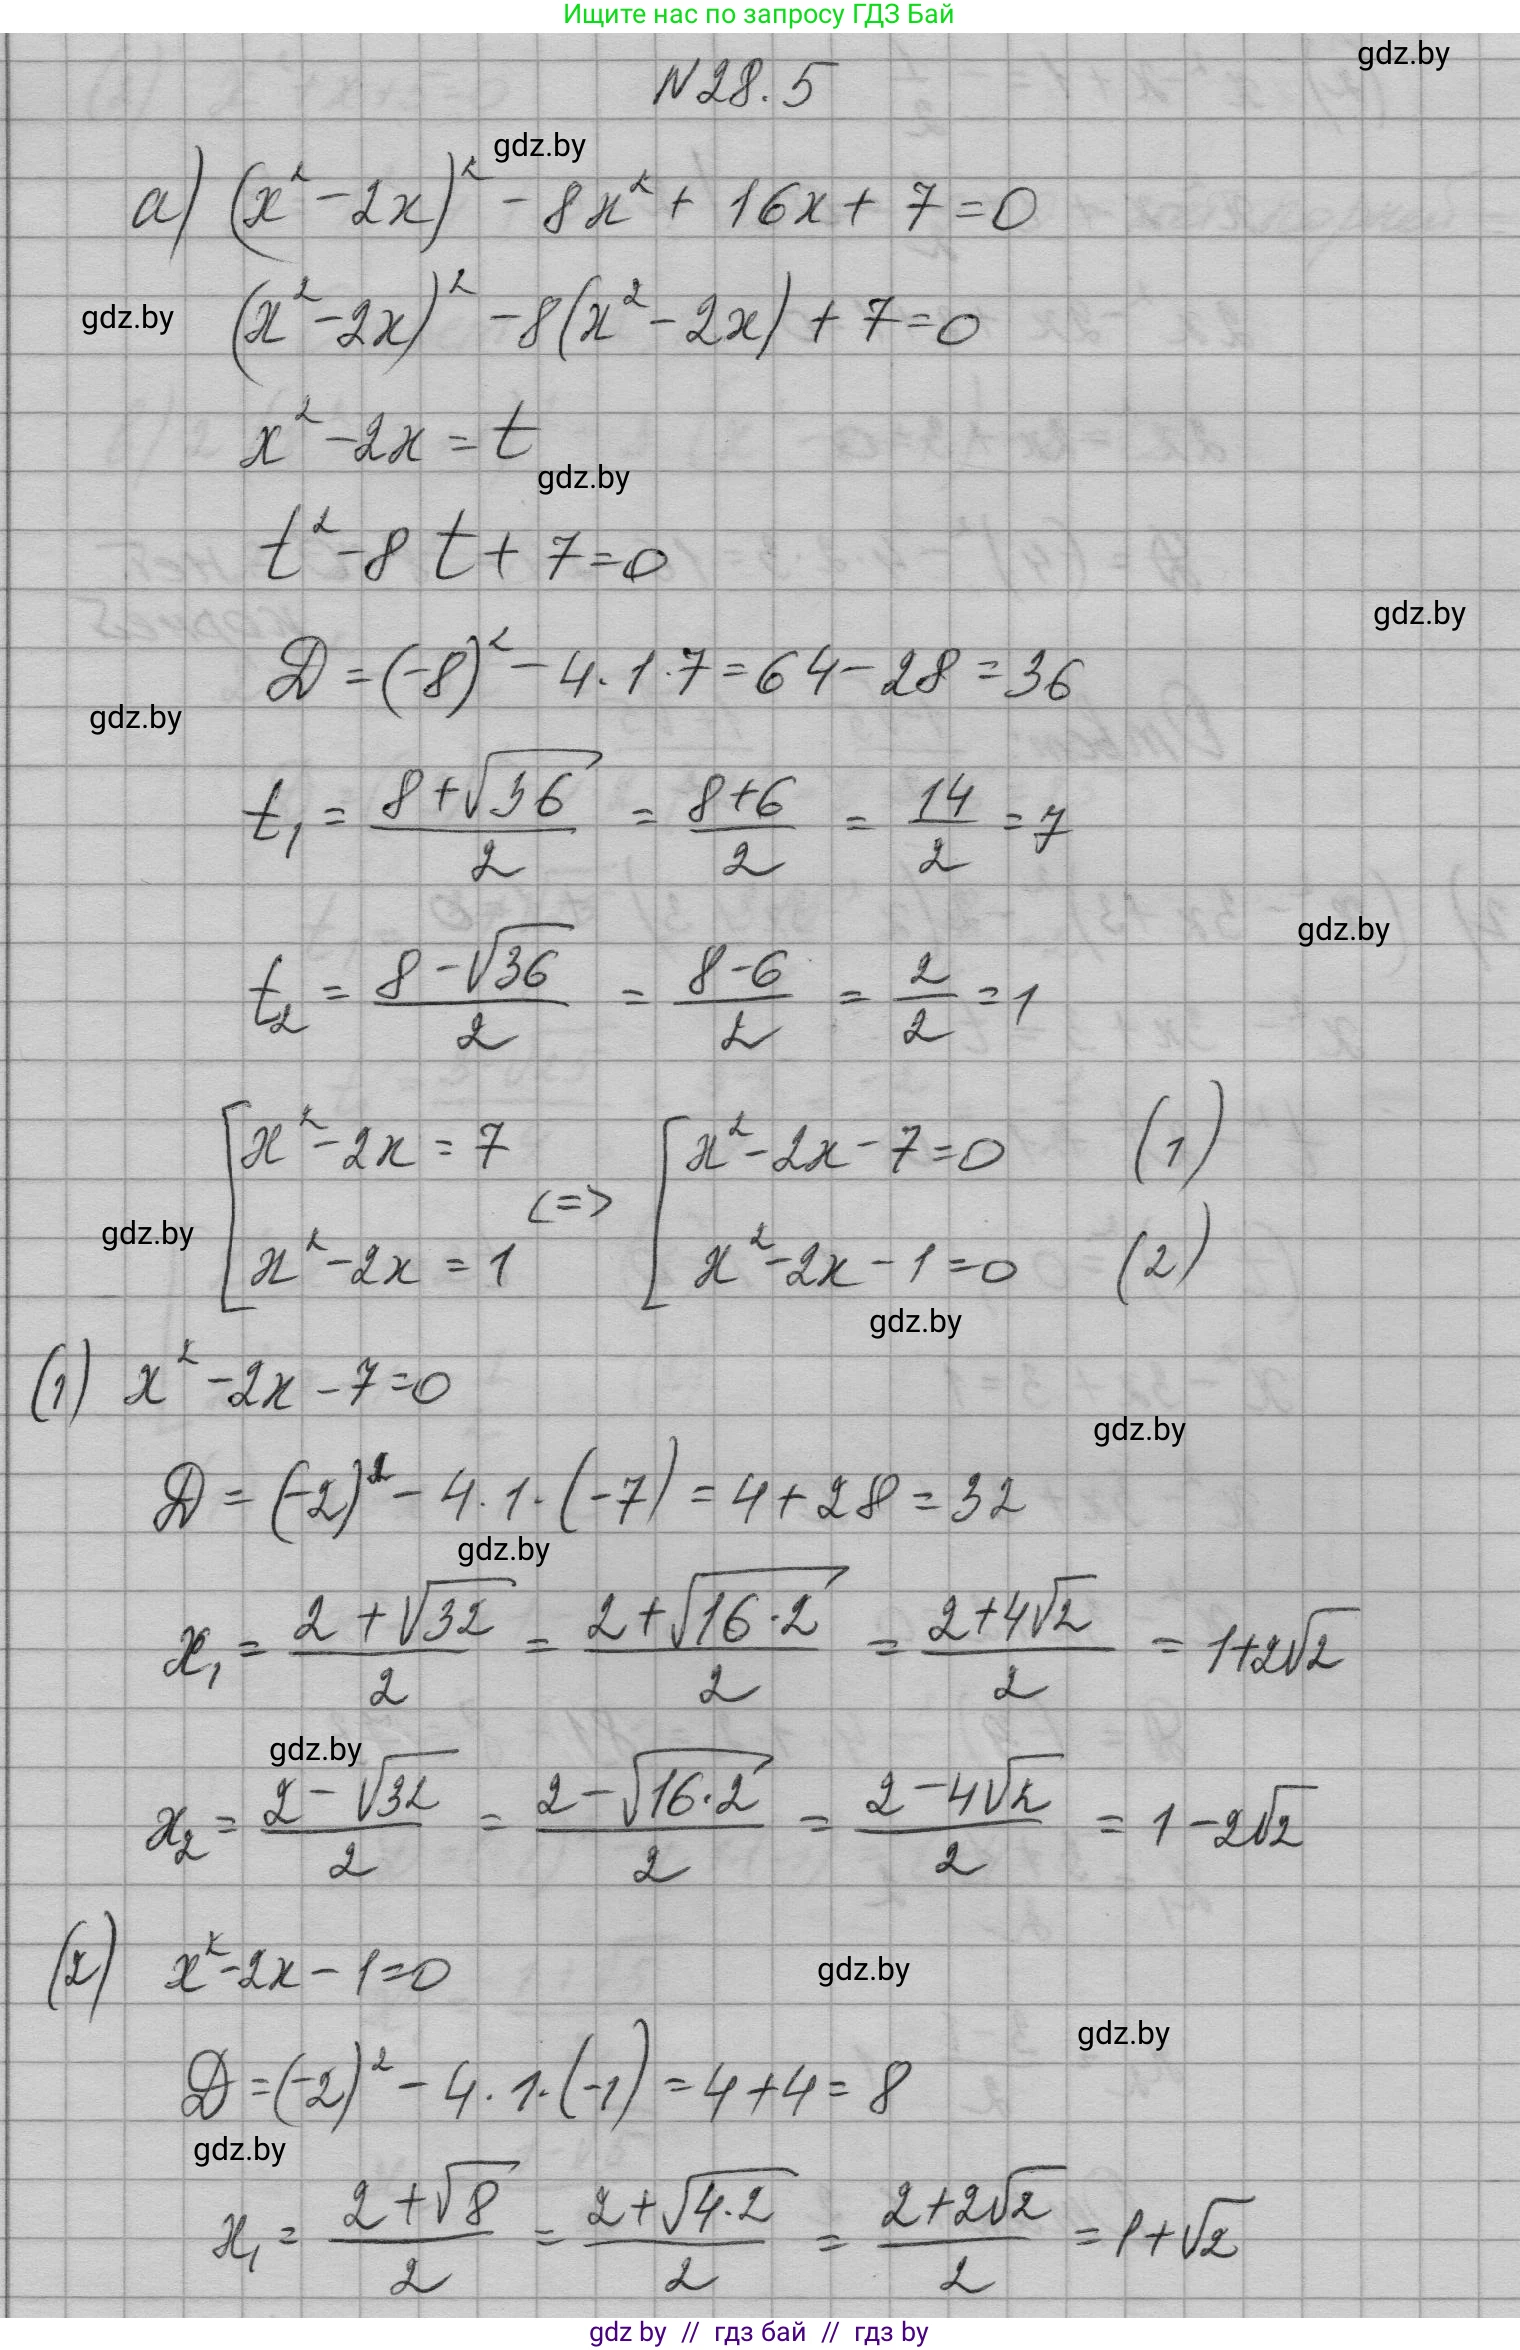 Ищите нас по запросу ГДЗ Бай
gdz.by
N28.5
gdz.by
а) (x² - 2x)² - 8x² + 16x + 7 = 0
gdz.by
(x² - 2x)² - 8(x² - 2x) + 7 = 0
x² - 2x = t
gdz.by
t² - 8t + 7 = 0
gdz.by
D = (-8)² - 4·1·7 = 64 - 28 = 36
gdz.by
t₁ = (8 + √36)/2 = (8+6)/2 = 14/2 = 7
gdz.by
t₂ = (8 - √36)/2 = (8-6)/2 = 2/2 = 1
[ x² - 2x = 7 <=> [ x² - 2x - 7 = 0 (1)
gdz.by
x² - 2x = 1 x² - 2x - 1 = 0 (2)
gdz.by
(1) x² - 2x - 7 = 0
gdz.by
D = (-2)² - 4·1·(-7) = 4 + 28 = 32
gdz.by
x₁ = (2 + √32)/2 = (2 + √16·2)/2 = (2 + 4√2)/2 = 1 + 2√2
gdz.by
x₂ = (2 - √32)/2 = (2 - √16·2)/2 = (2 - 4√2)/2 = 1 - 2√2
(2) x² - 2x - 1 = 0
gdz.by
gdz.by
D = (-2)² - 4·1·(-1) = 4 + 4 = 8
gdz.by
x₁ = (2 + √8)/2 = (2 + √4·2)/2 = (2 + 2√2)/2 = 1 + √2
gdz by // гдз бай // гдз by